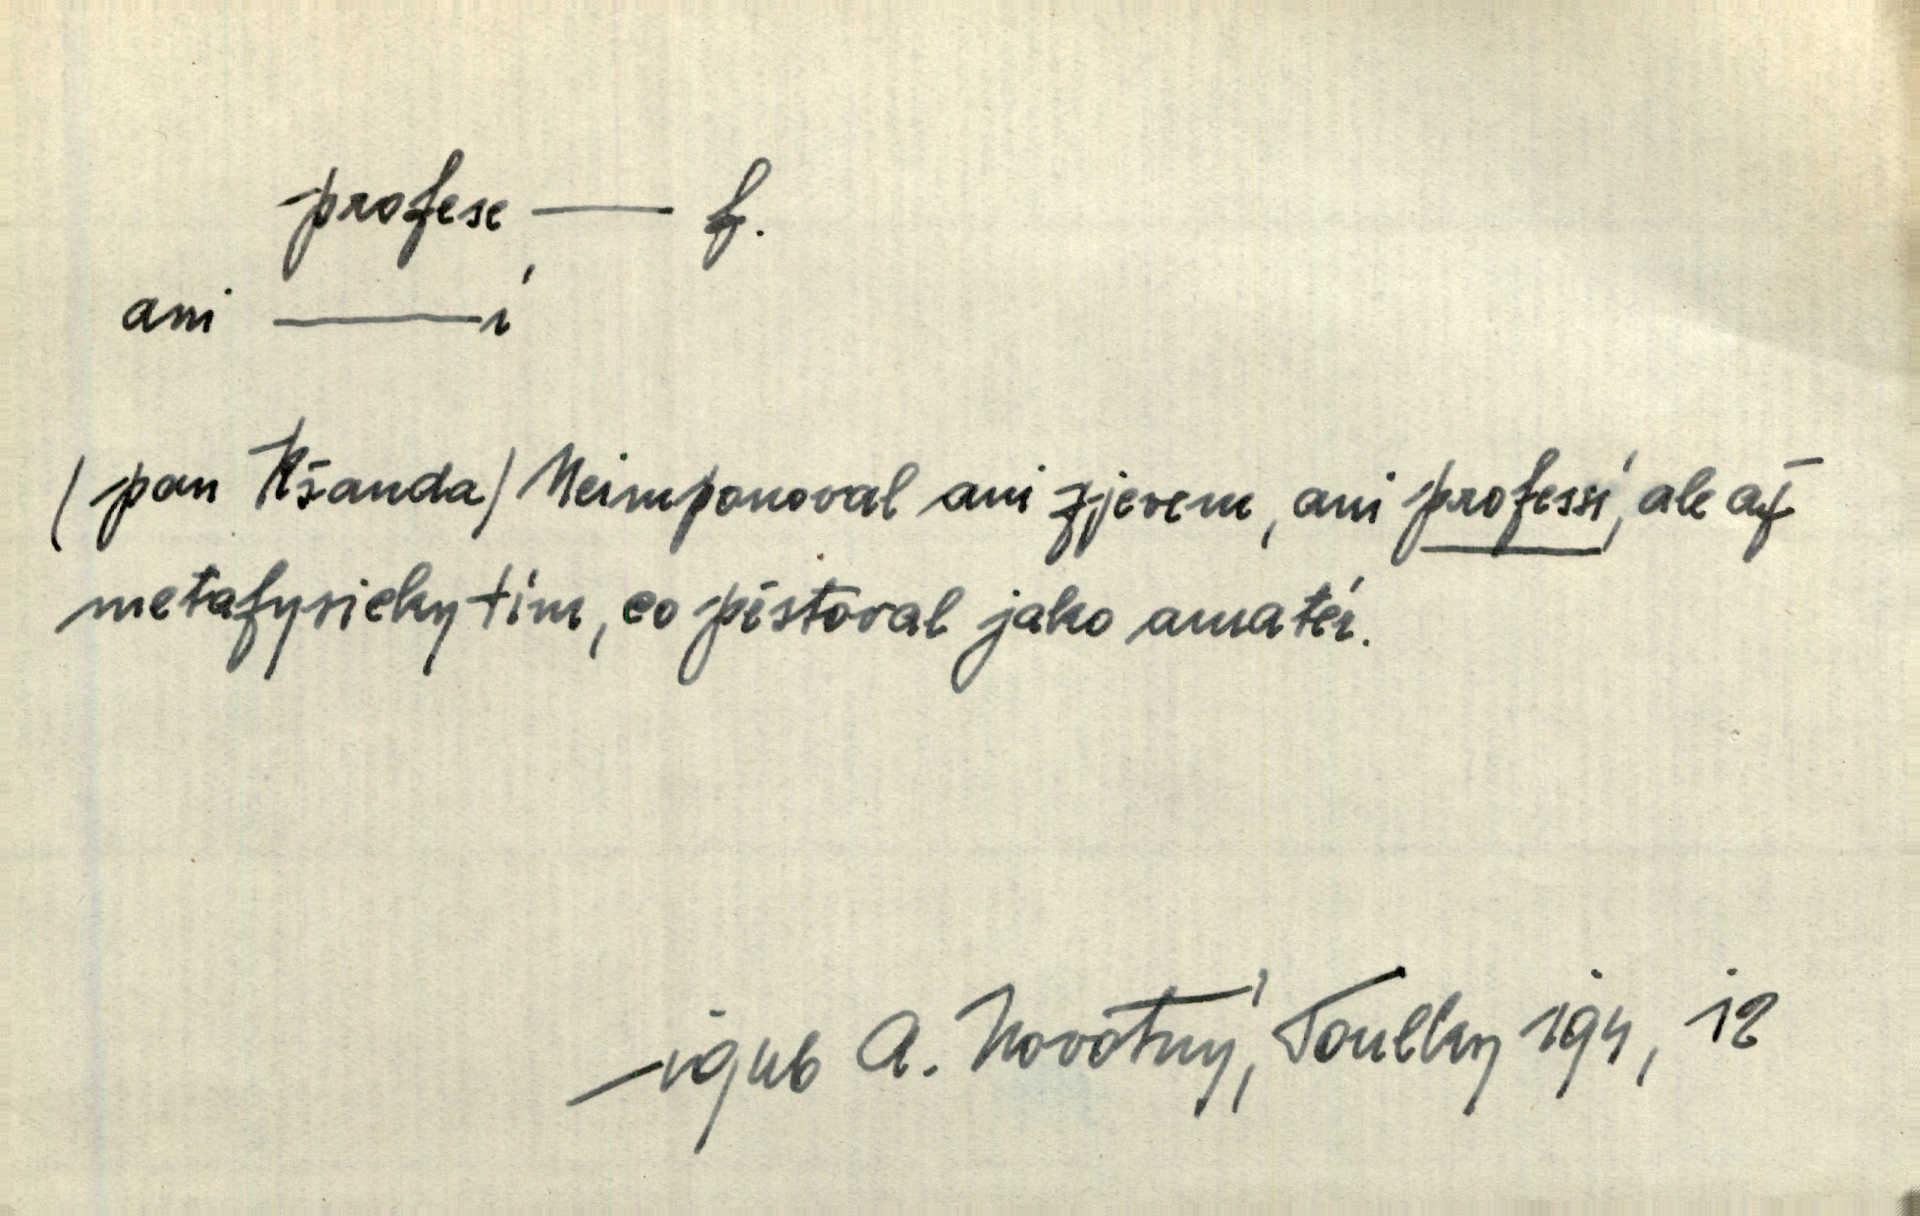 profese — f.
ani —í
(pan Kšanda) Neimponoval ani zjevem, ani professí, ale až
metafysicky tím, co pěstoval jako amatér.
1946 A. Novotný, Toulky 194, 12